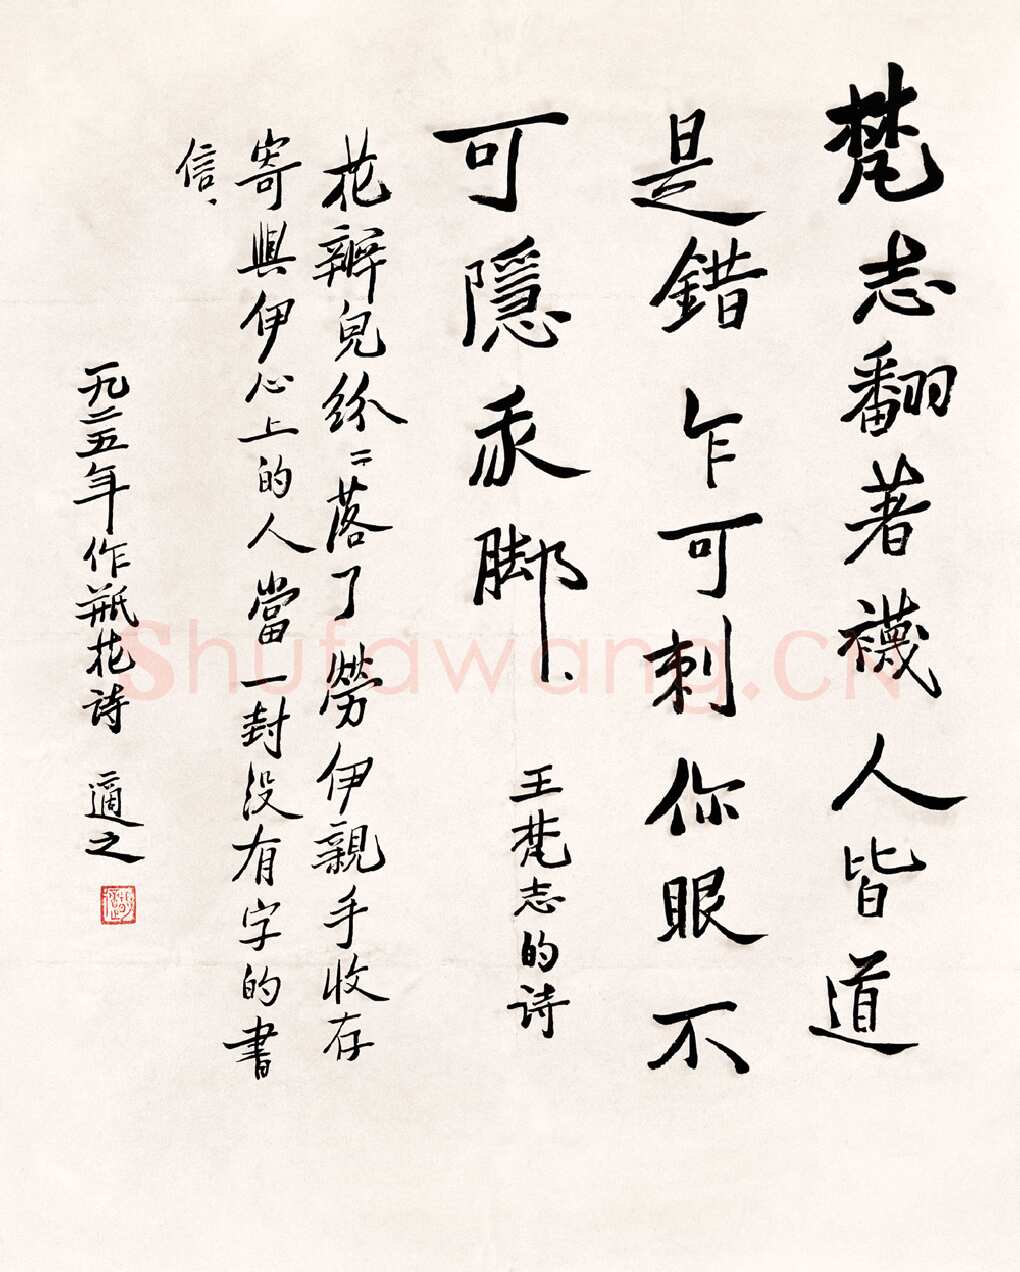 梵志翻著襪人皆道
是錯乍可刺你眼不
可隱我脚、
王梵志的诗
花瓣兒紛〻落了勞伊親手收存
寄與伊心上的人當一封沒有字的書
信、
一九二五年作瓶花詩 適之
Shufawang.CN